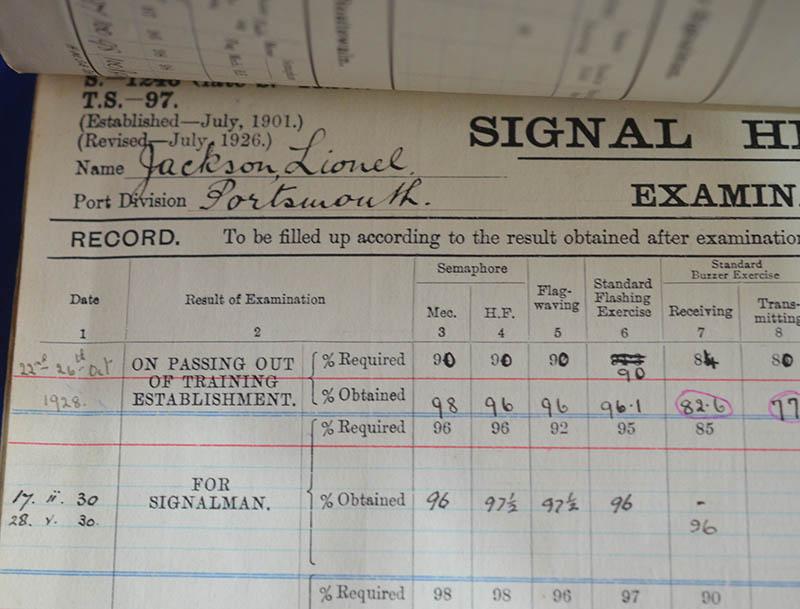 T.S.—97.
(Established—July, 1901.)
(Revised—July, 1926.)
SIGNAL
Name Jackson, Lionel.
Port Division Portsmouth.
EXAMIN
RECORD. To be filled up according to the result obtained after examination
Semaphore
Standard
Buzzer Exercise
Date
Result of Examination
Mec.
H.F.
Flag-
waving
Standard
Flashing
Exercise
Receiving
Trans-
mitting
1 2 3 4 5 6 7 8
22nd 26th Oct
1928.
ON PASSING OUT
OF TRAINING
ESTABLISHMENT.
% Required 90 90 90 90 84 80
% Obtained 98 96 96 96·1 82·6 77
% Required 96 96 92 95 85
FOR
SIGNALMAN.
17. ii. 30
28. v. 30.
% Obtained 96 97½ 97½ 96 -
96
% Required 98 98 96 97 90